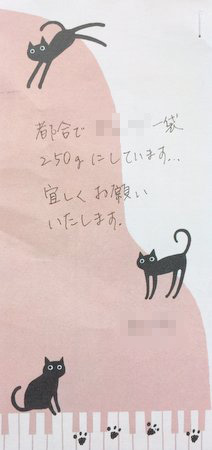 都合で 一袋
250gにしています...
宜しくお願い
いたします.